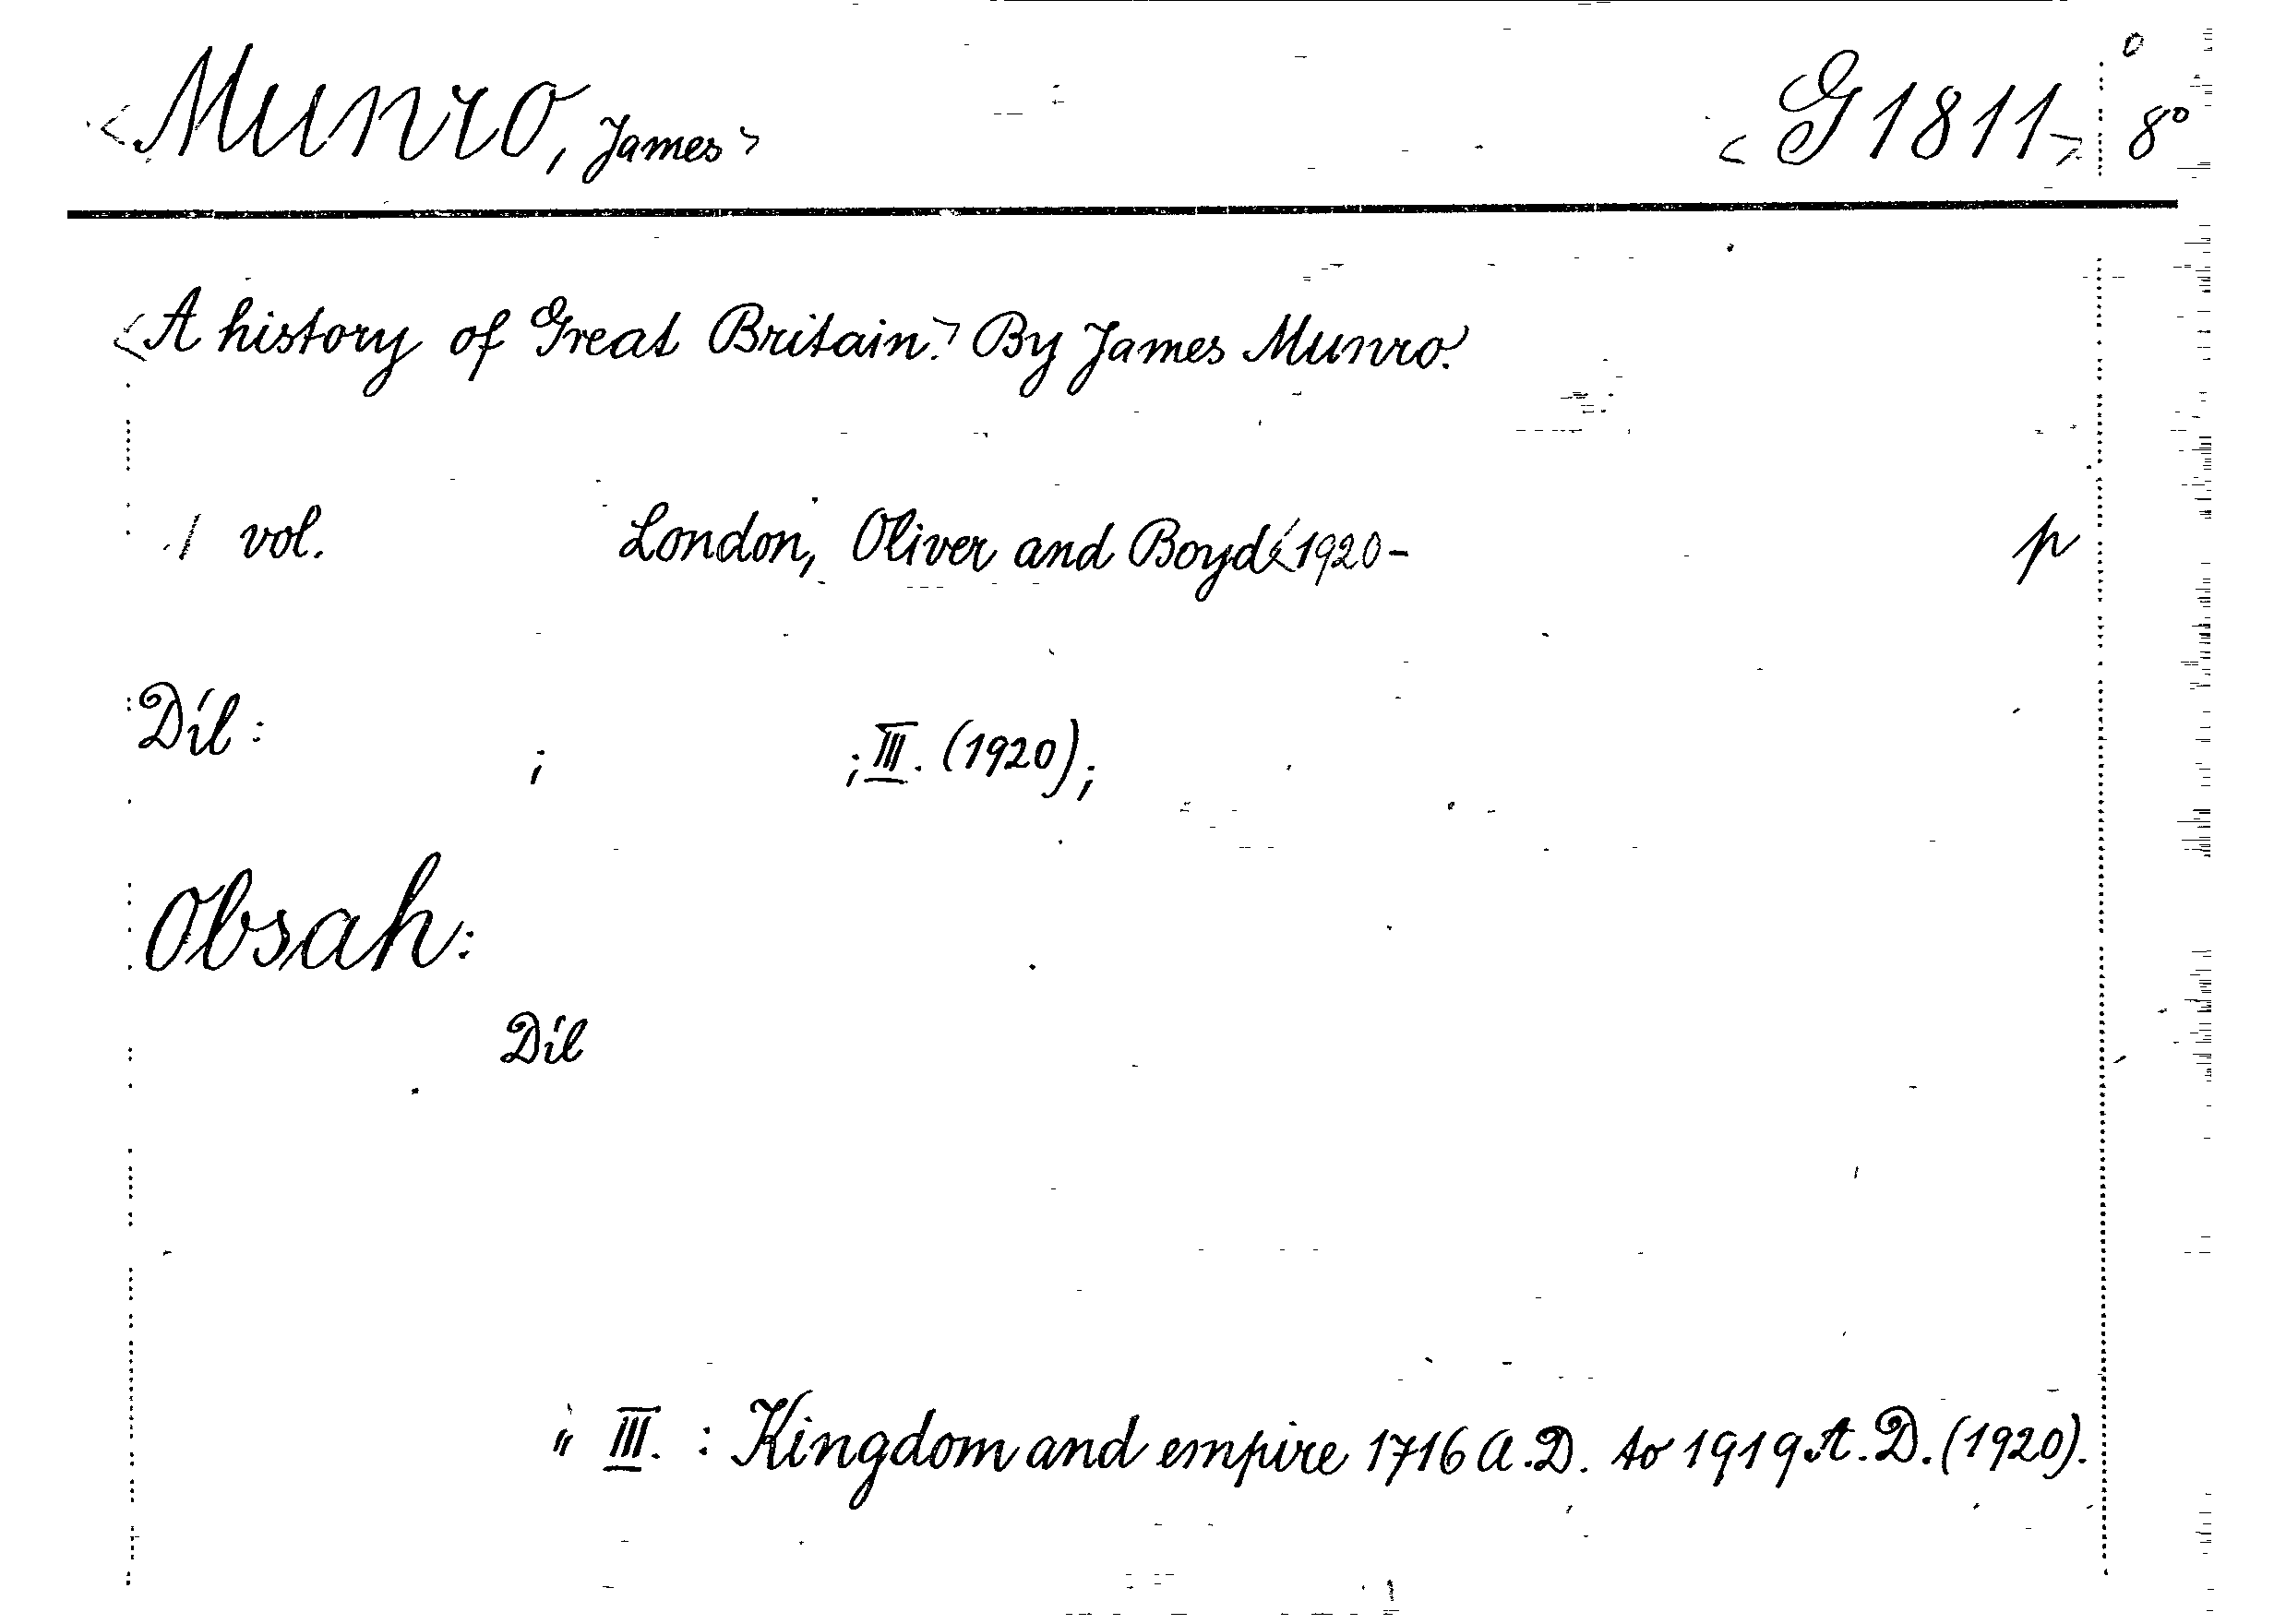 <Munro, James> <G 1811> 8°
<A history of Great Britain.> By James Munro.
1 vol. London, Oliver and Boyd <1920- p
Díl: ; ; III. (1920);
Obsah:
Díl
" III. : Kingdom and empire 1716 A.D. to 1919 A.D. (1920).